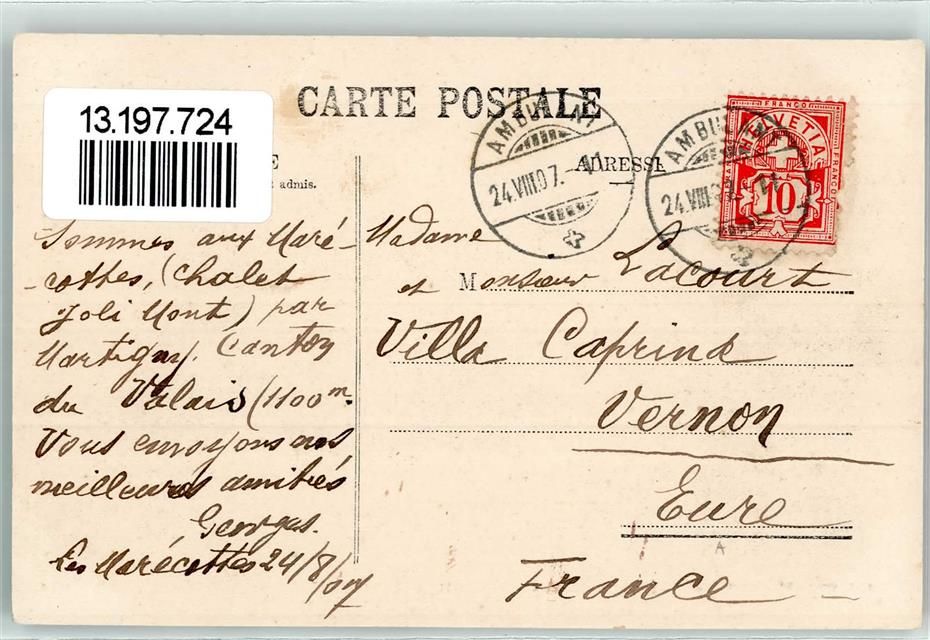 CARTE POSTALE
13.197.724
E
admis.
ADRESSE
AMBULANT
24.VIII.07.
AMBULANT
24.VIII.07.
FRANCO
HELVETIA
FRANCO
10
Sommes aux Maré-
-cottes, (Chalet
Joli Mont) par
Martigny. Canton
du Valais (1100m.
Vous envoyons nos
meilleures amitiés
Georges.
Les Marécottes 24/8/07
Madame
et Monsieur Lacourt
Villa Caprina
Vernon
Eure
France